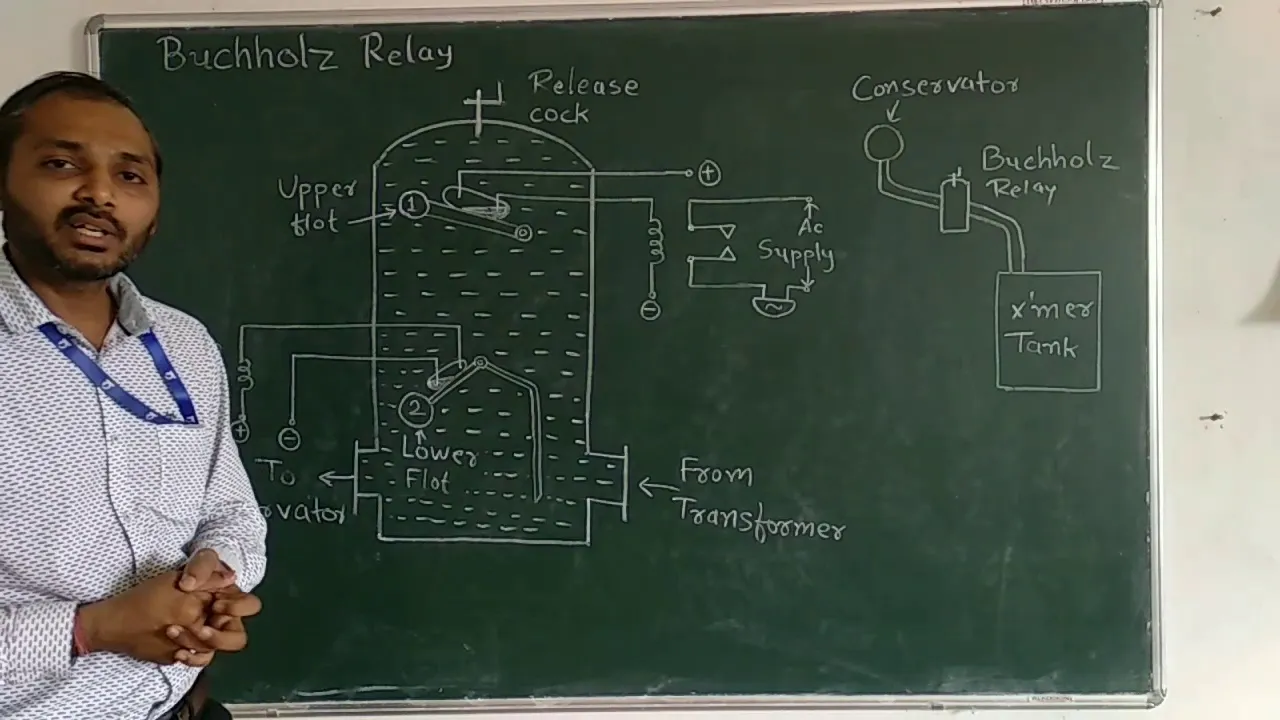 Buchholz Relay
Release
cock
Upper
flot
1
+
Ac
Supply
~
−
2
Lower
Flot
+
−
To
rvator
From
Transformer
Conservator
Buchholz
Relay
x'mer
Tank